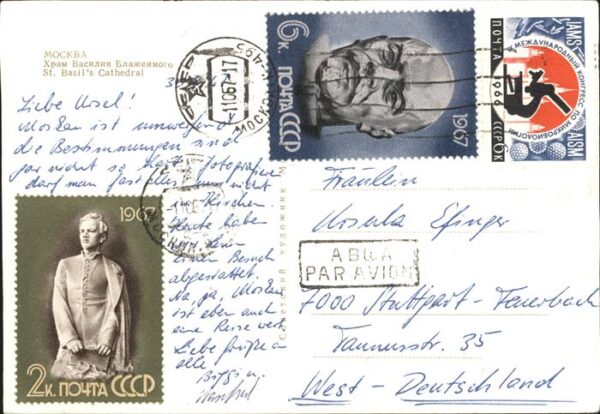 МОСКВА
Храм Василия Блаженного
St. Basil's Cathedral
Liebe Usel!
Moskau ist
die Bestimmungen sind
gar nicht so hart, fotografieren
darf man fast alles, nur nicht
in Kirchen.
Heute haben
einen Besuch
abgestattet.
Na ja, Moskau
ist eben auch
eine Reise wert.
Liebe Grüße an
alle
Manfred
СССР
110667-17
МОСКВА
6К. ПОЧТА СССР
1967
IAMS
ПОЧТА 1966 СССР 6к
IX МЕЖДУНАРОДНЫЙ КОНГРЕСС ПО МИКРОБИОЛОГИИ
AISM
1967
2К. ПОЧТА СССР
Советский художник
Fräulein
Ursula Efinger
АВИА
PAR AVION
7000 Stuttgart-Feuerbach
Taunusstr. 35
West-Deutschland